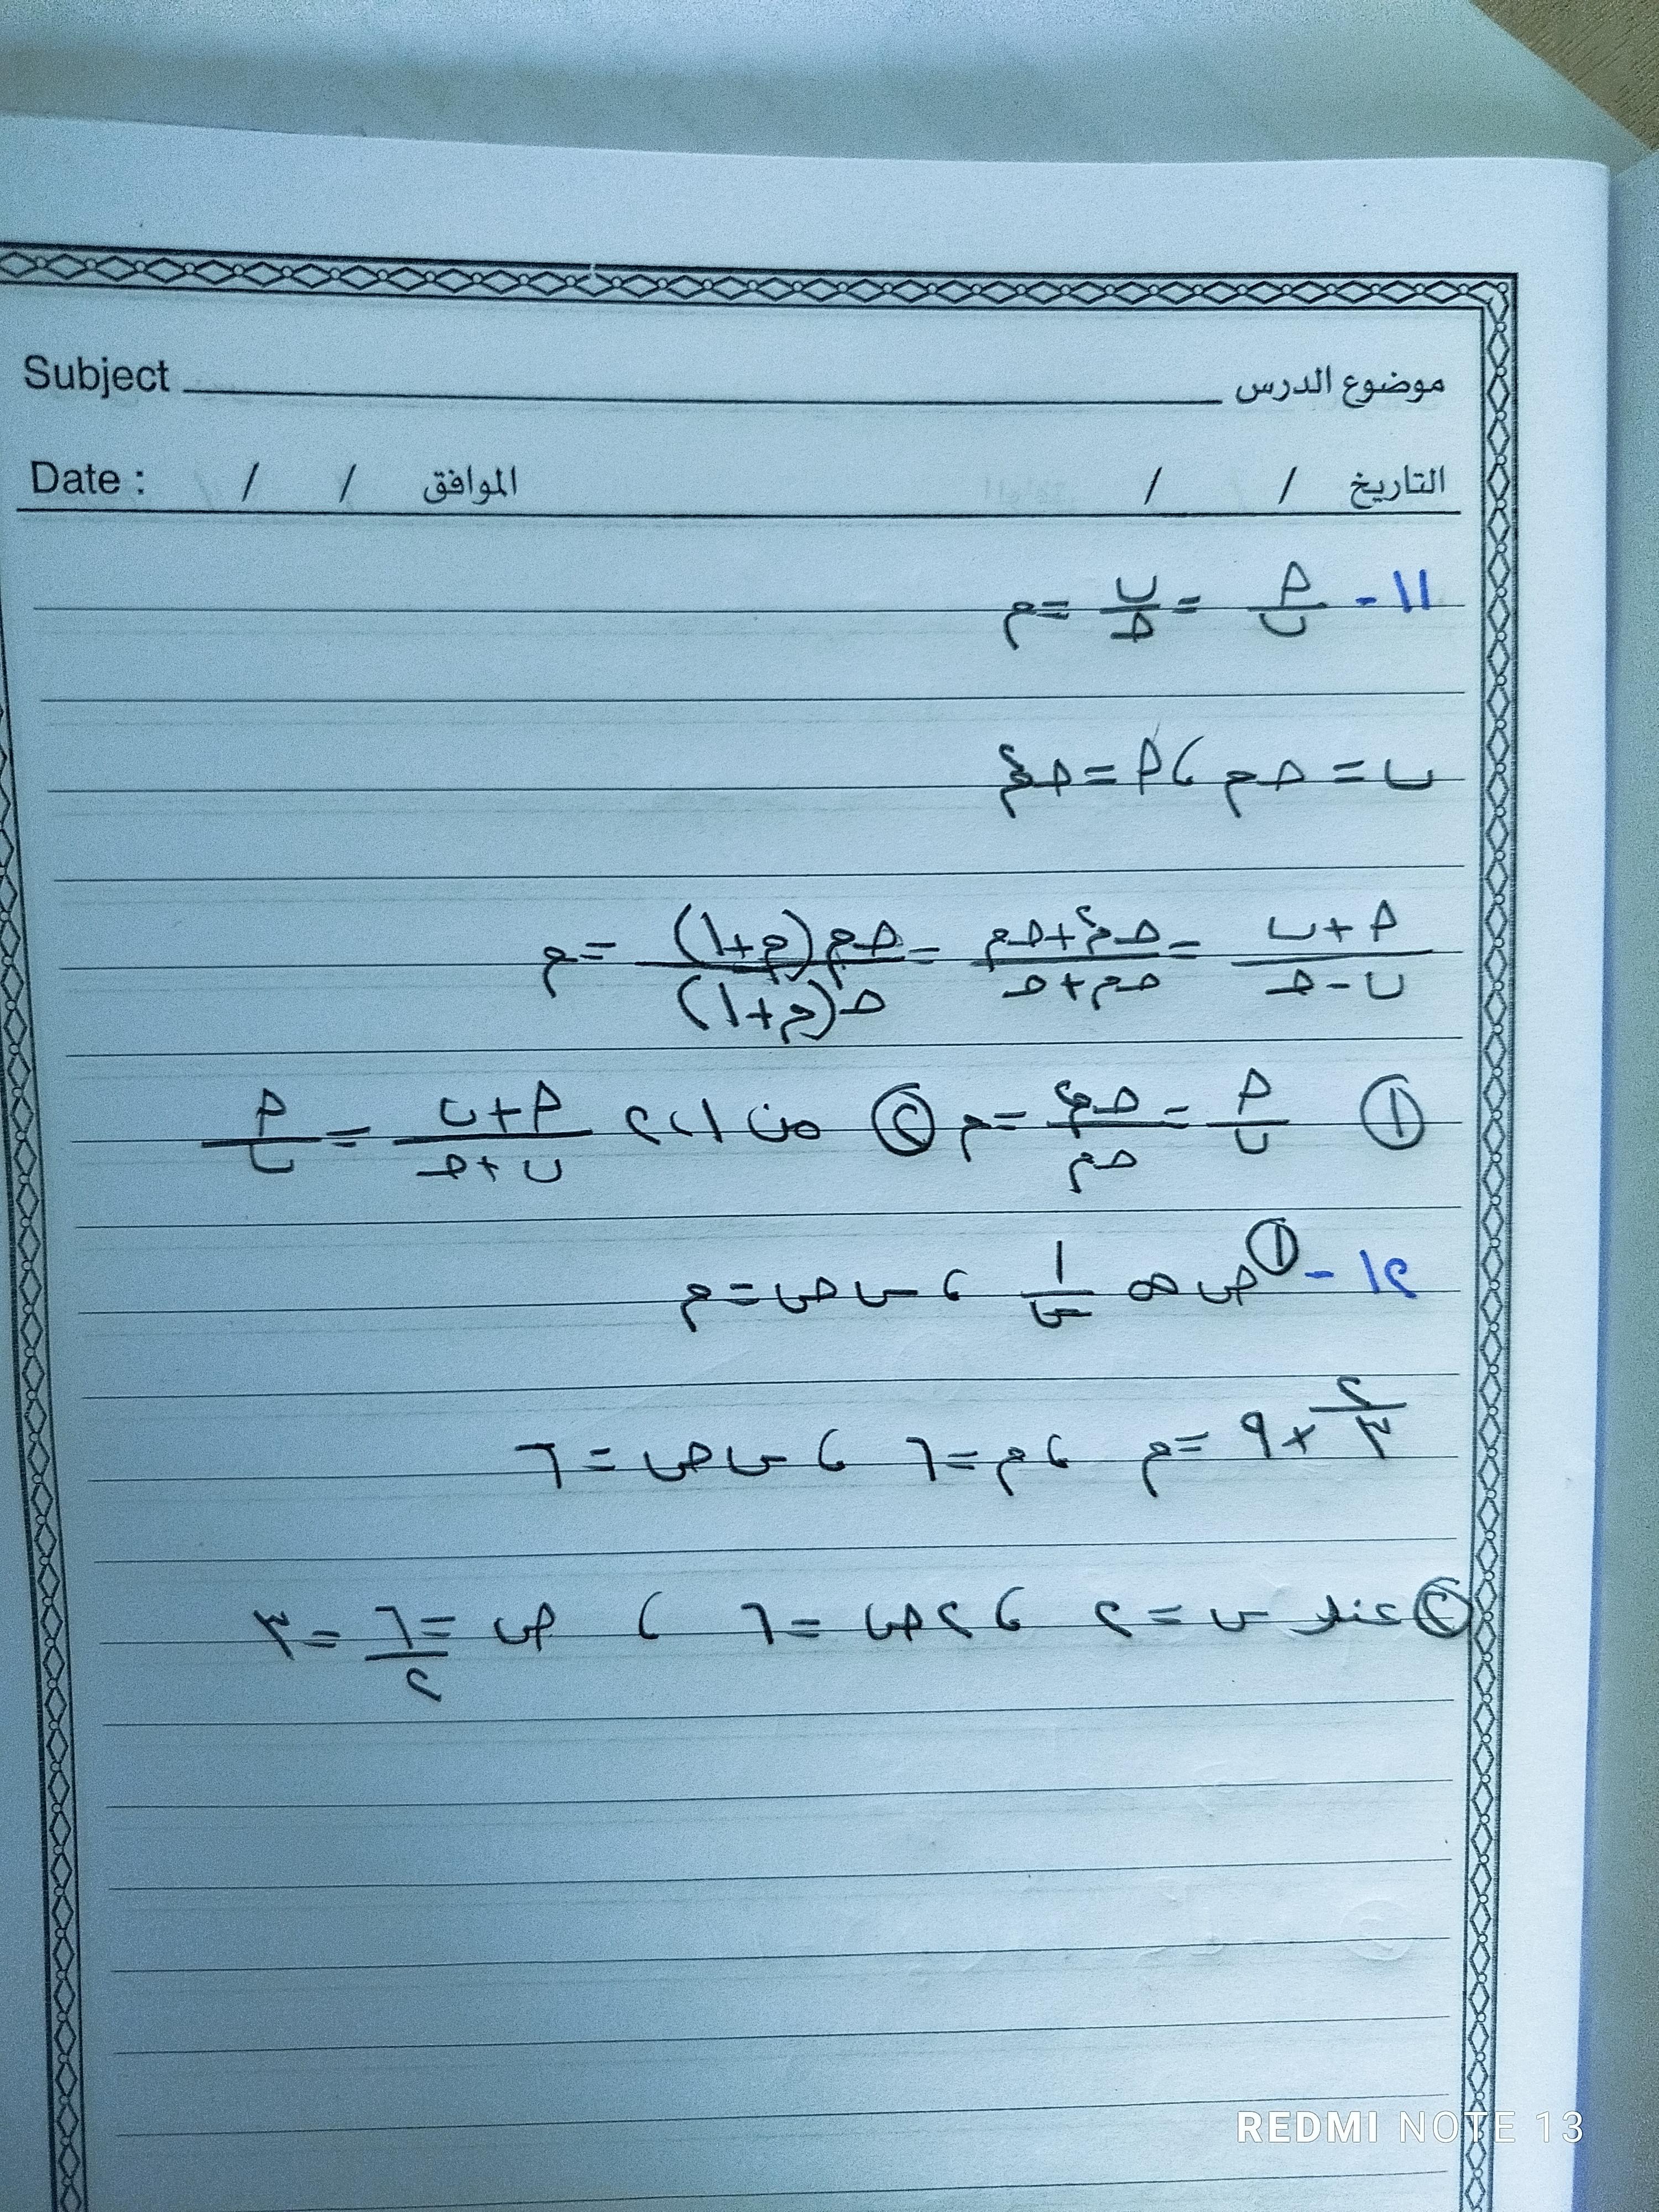 Subject موضوع الدرس
Date : / / الموافق / / التاريخ
١١- أ/ب = ب/ج = م
ب = جم ، أ = جم٢
(أ+ب)/(ب-ج) = (جم٢+جم)/(جم+ج) = جم(م+١)/ج(م+١) = م
① أ/ب = جم٢/جم = م ② من ١، ٢ (أ+ب)/(ب+ج) = أ/ب
١٢- ① ص ∝ ١/س ، س ص = م
٢/٣ × ٩ = م ، م = ٦ ، س ص = ٦
② عند س = ٢ ، ٢ ص = ٦ ، ص = ٦/٢ = ٣
REDMI NOTE 13